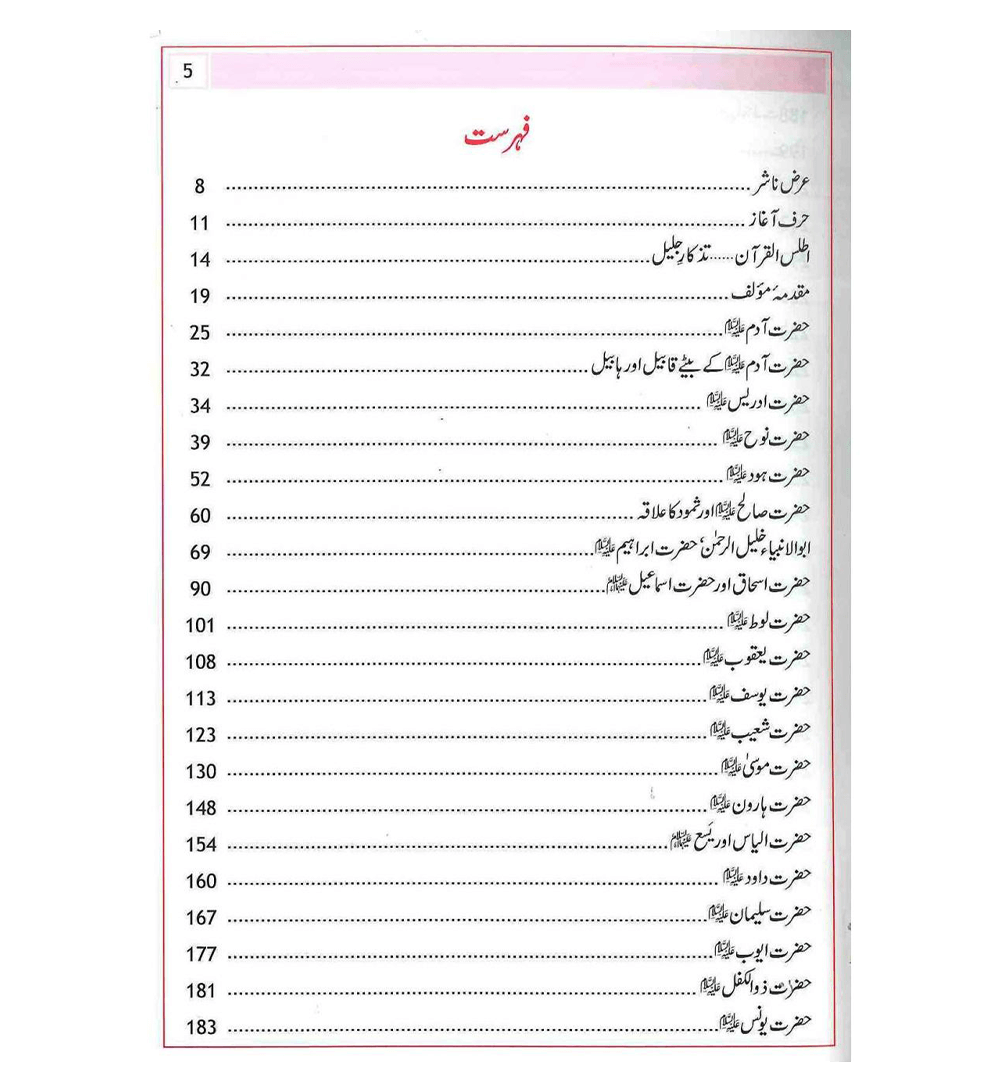 5
فہرست
عرض ناشر ........ 8
حرف آغاز ........ 11
اطلس القرآن...... تذکارِ جلیل ........ 14
مقدمۂ مؤلف ........ 19
حضرت آدم علیہ السلام ........ 25
حضرت آدم علیہ السلام کے بیٹے قابیل اور ہابیل ........ 32
حضرت ادریس علیہ السلام ........ 34
حضرت نوح علیہ السلام ........ 39
حضرت ہود علیہ السلام ........ 52
حضرت صالح علیہ السلام اور ثمود کا علاقہ ........ 60
ابوالانبیاء خلیل الرحمٰن‘ حضرت ابراہیم علیہ السلام ........ 69
حضرت اسحاق اور حضرت اسماعیل علیہما السلام ........ 90
حضرت لوط علیہ السلام ........ 101
حضرت یعقوب علیہ السلام ........ 108
حضرت یوسف علیہ السلام ........ 113
حضرت شعیب علیہ السلام ........ 123
حضرت موسیٰ علیہ السلام ........ 130
حضرت ہارون علیہ السلام ........ 148
حضرت الیاس اور یَسَع علیہما السلام ........ 154
حضرت داود علیہ السلام ........ 160
حضرت سلیمان علیہ السلام ........ 167
حضرت ایوب علیہ السلام ........ 177
حضرت ذوالکفل علیہ السلام ........ 181
حضرت یونس علیہ السلام ........ 183